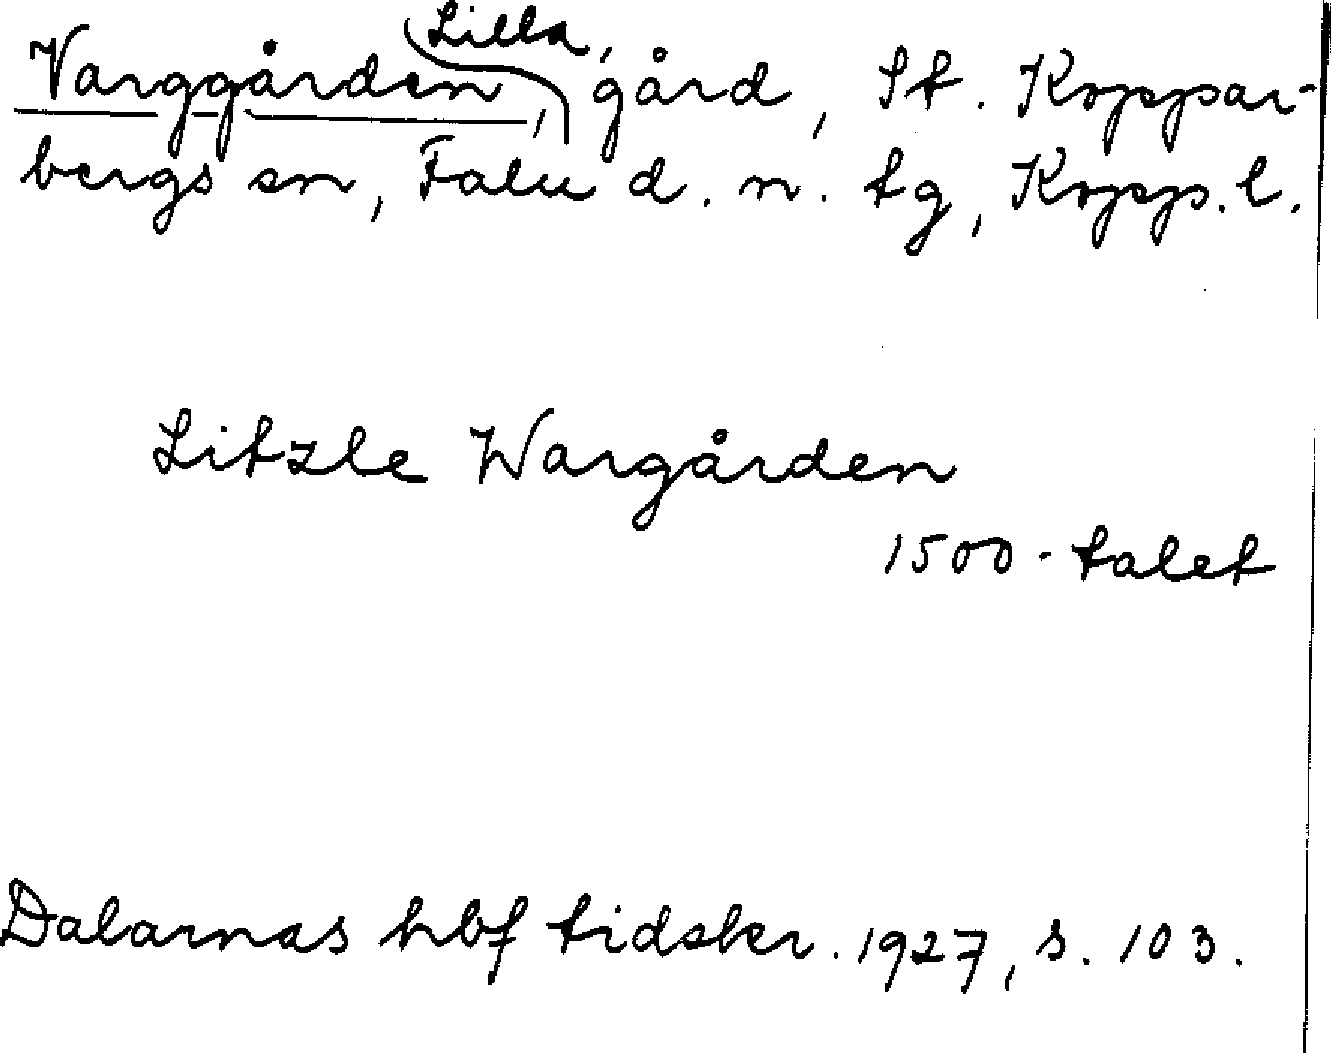 Varggården, Lilla, gård, St. Koppar-
bergs sn, Falu d. n. tg, Kopp. l.
Litzle Wargården
1500-talet
Dalarnas hbf tidskr. 1927, s. 103.